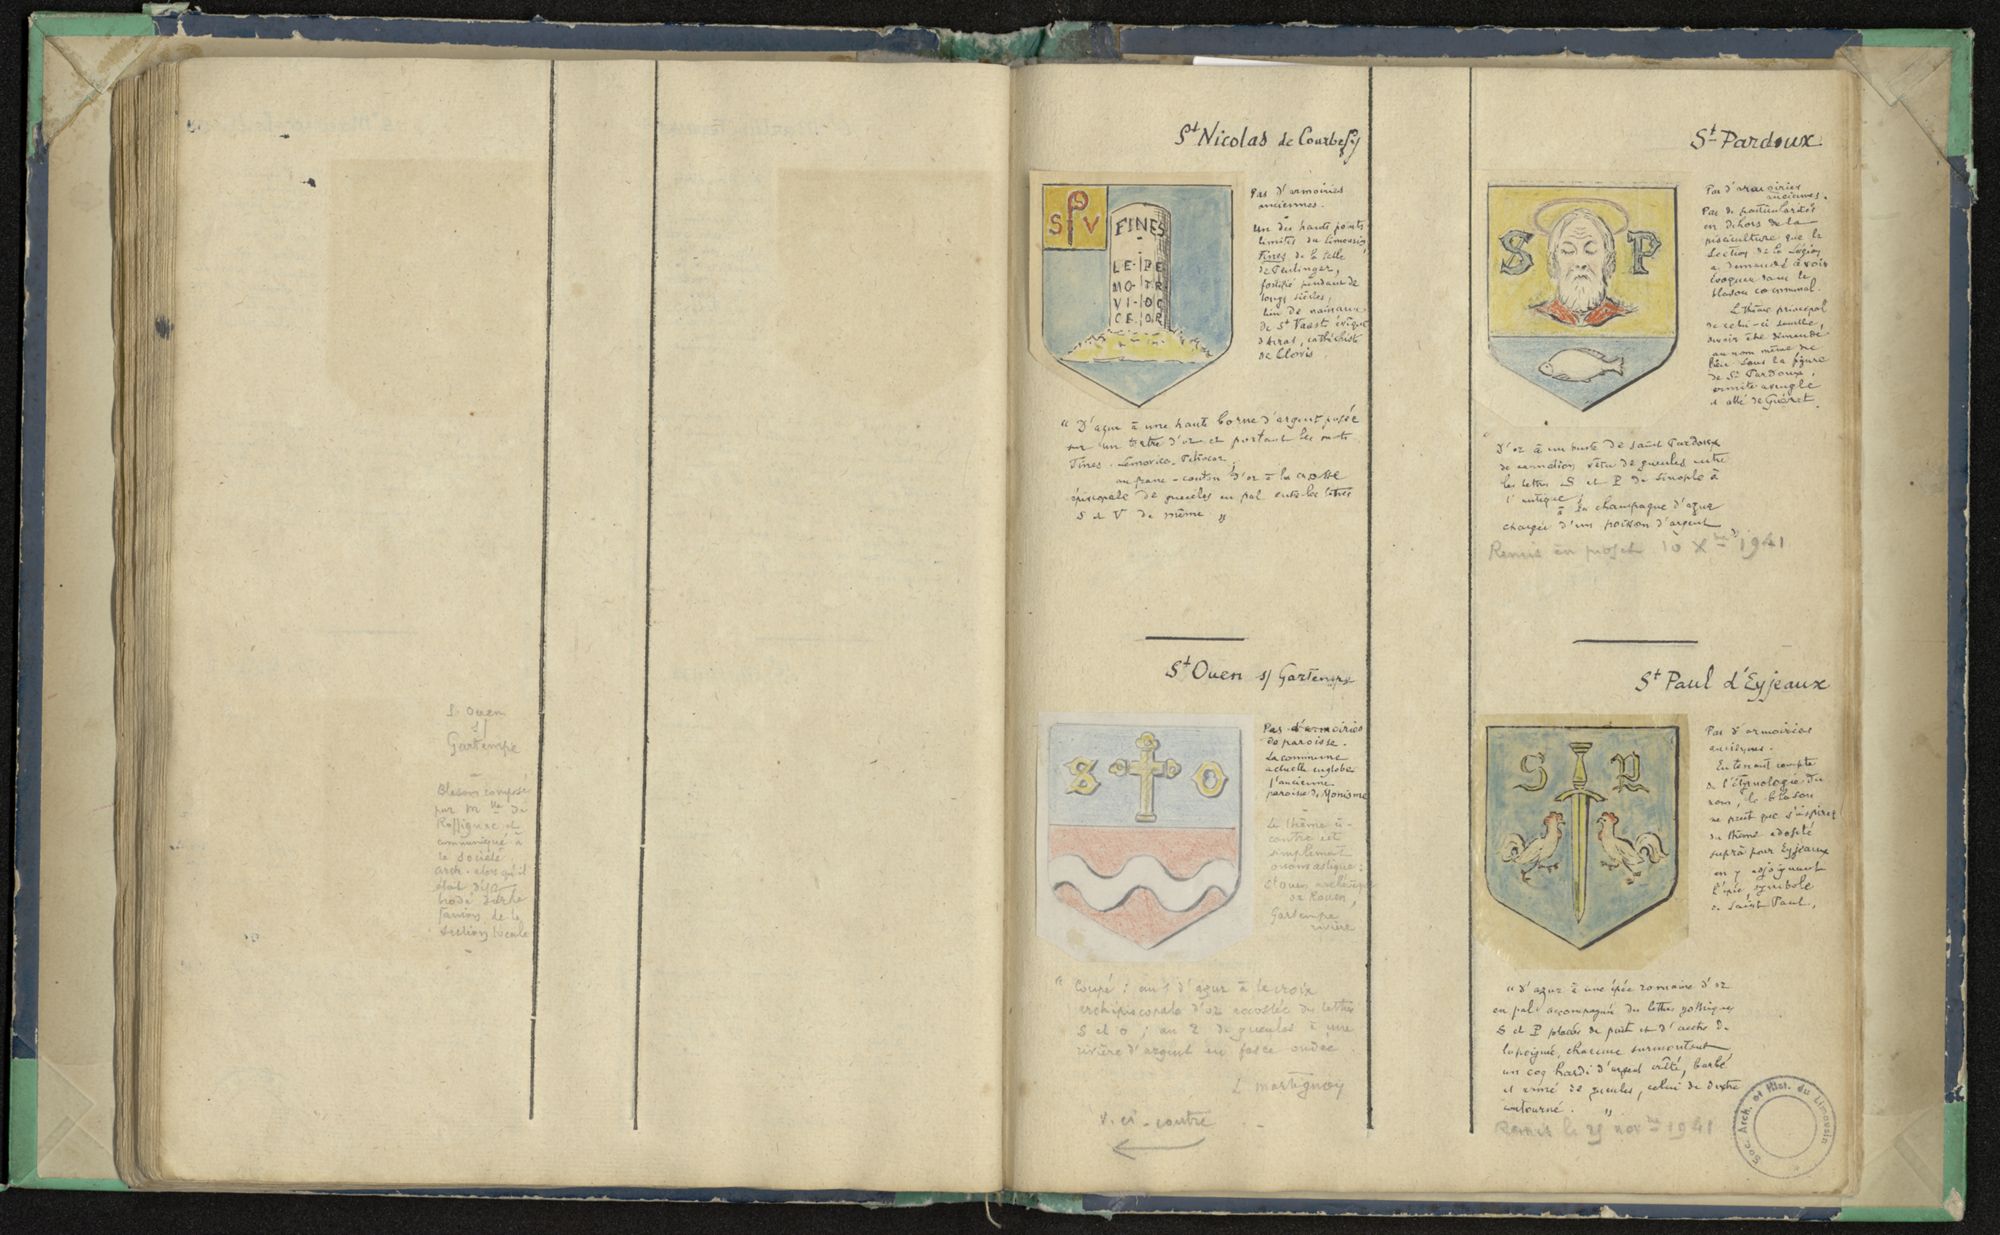 S. Ouen
s/
Gartempe
Blason composé
par Mlle de
Roffignac et
communiqué à
la Société
Arch. alors qu'il
était déjà
brodé sur le
fanion de la
section locale
St Nicolas de Courbefy
S P V
FINES
LE·PE
MO·TR
VI·OC
CE·OR
Pas d'armoiries
anciennes.
Un des hauts points
limites du Limousin,
Fines de la table
de Peutinger,
fortifié pendant de
longs siècles,
lieu de naissance
de St Vaast évêque
d'Arras, cathéchiste
de Clovis.
" D'azur à une haute borne d'argent posée
sur un tertre d'or et portant les mots
Fines. Lemovice. Petrocor
au franc-canton d'or à la crosse
épiscopale de gueules en pal entre les lettres
S et V de même. "
St Pardoux
S P
Pas d'armoiries
anciennes.
Pas de particularités
en dehors de la
pisciculture que la
Section de la Légion
a demandé à voir
évoquer dans le
blason communal.
L'thème principal
de celui-ci semble,
devoir être demandé
au nom même du
lieu sous la figure
de St Pardoux,
ermite aveugle
et abbé de Guéret.
" D'or à un buste de saint Pardoux
de carnation vêtu de gueules entre
les lettres S et P de sinople à
l'antique;
à la champagne d'azur
chargée d'un poisson d'argent
Remis en projet 10 Xbre 1941
St Ouen s/ Gartempe
S O
Pas d'armoiries
de paroisse.
La commune
actuelle englobe
l'ancienne
paroisse de Monisme
Le thème ci-
contre est
simplement
onomastique:
St Ouen archevêque
de Rouen,
Gartempe
rivière
" Coupé : au 1 d'azur à la croix
archiépiscopale d'or accostée des lettres
S et O ; au 2 de gueules à une
rivière d'argent en fasce ondée
L Martignon
V. ci-contre
St Paul d'Eyjeaux
S P
Pas d'armoiries
anciennes.
En tenant compte
de l'étymologie du
nom, le blason
ne peut que s'inspirer
du thème adopté
suprà pour Eyjeaux
en y adjoignant
l'épée, symbole
de Saint Paul.
" D'azur à une épée romaine d'or
en pal accompagnée des lettres gothiques
S et P placées de part et d'autre de
la poignée, chacune surmontant
un coq hardi d'argent crêté, barbé
et armé de gueules, celui de dextre
contourné. "
Remis le 25 novbre 1941
Soc. Arch. et Hist. du Limousin